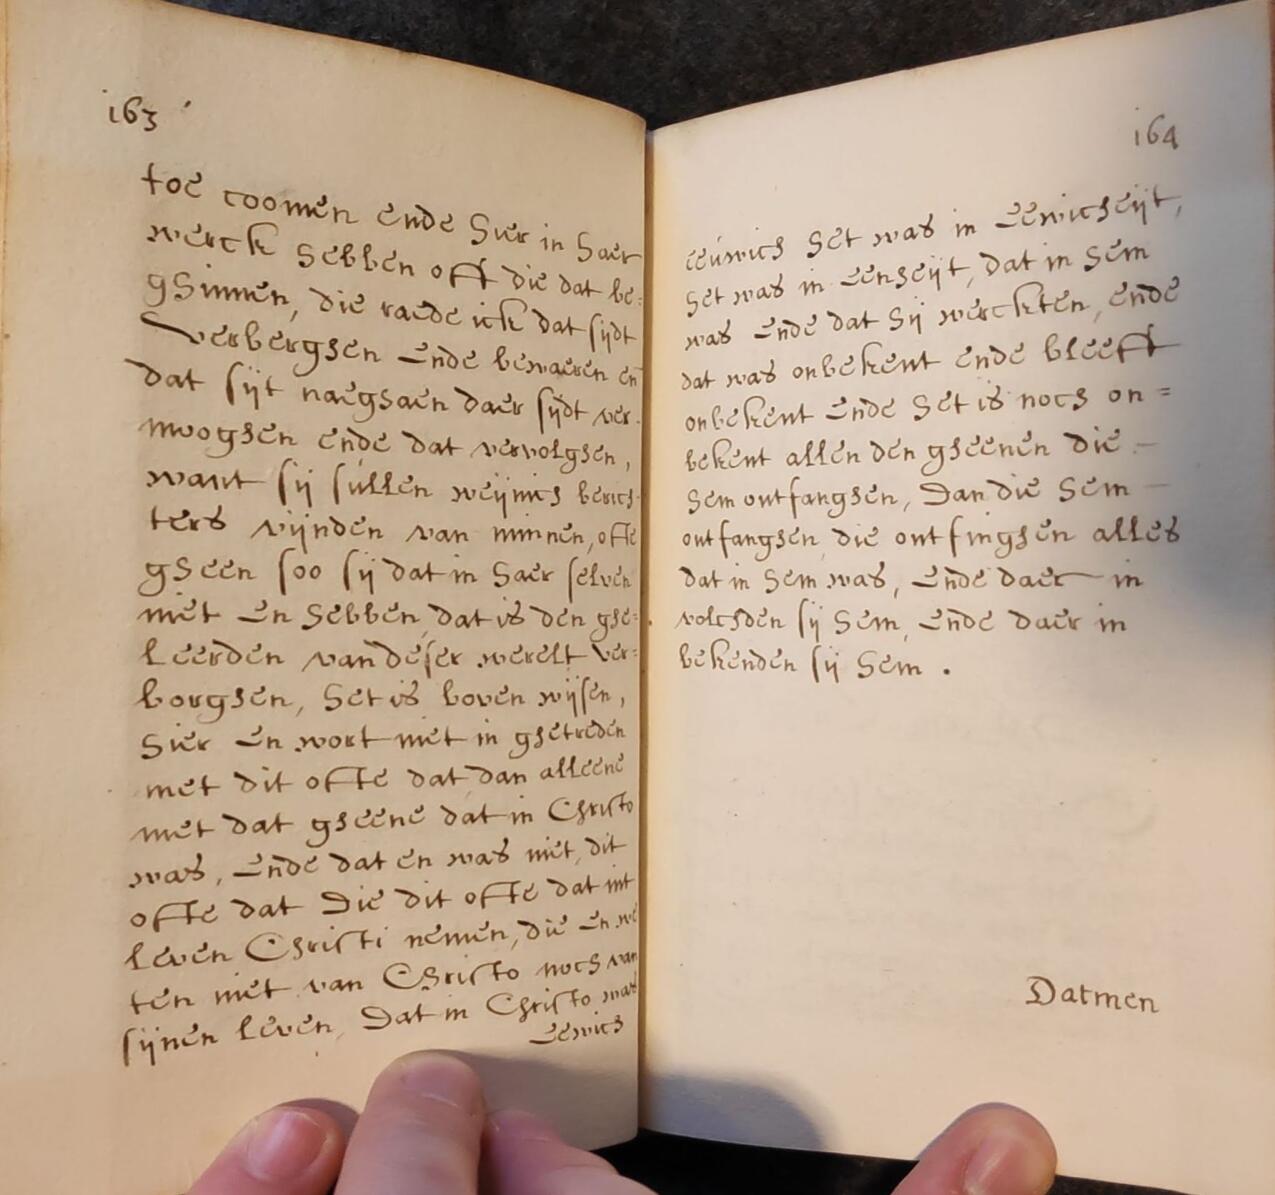 163
toe coomen ende hier in haer
werck hebben oft die dat be=
ghinnen, die raede ick dat sijdt
verberghen ende bewaeren en
dat sijt naeghaen daer sijdt ver-
mooghen ende dat vervolghen,
want sij sullen weijnich berich-
ters vijnden van minnen, ofte
gheen soo sij dat in haer selven
niet en hebben, dat is den ghe=
leerden van deser werelt ver=
borghen, het is boven wijsen,
hier en wort niet in ghetreden
met dit ofte dat dan alleene
met dat gheene dat in Christo
was, ende dat en was niet, dit
ofte dat Die dit ofte dat int
leven Christi nemen, die en we
ten niet van Christo noch van
sijnen leven, Dat in Christo was
Eewich
164
eeúwich het was in Eewicheijt,
het was in Eenheijt, dat in hem
was Ende dat hij werckten, ende
dat was onbekent ende bleeft
onbekent Ende het is noch on=
bekent allen den gheenen die —
hem ontfanghen, Dan die hem —
ontfanghen, die ontfinghen alles
dat in hem was, Ende daer in
volchden sij hem, Ende daer in
bekenden sij hem .
Datmen